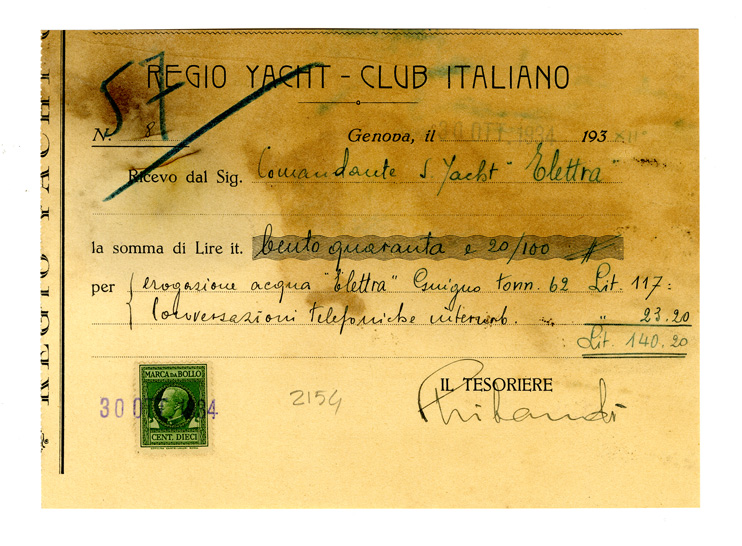 57
REGIO YACHT - CLUB ITALIANO
N. 8 Genova, il 193
Ricevo dal Sig. Comandante S Yacht "Elettra"
la somma di Lire it. Cento quaranta e 20/100
per erogazione acqua "Elettra" Giugno tonn. 62 Lit. 117:
Conversazioni telefoniche interurb. " 23.20
Lit. 140.20
IL TESORIERE
MARCA DA BOLLO
CENT. DIECI
2154